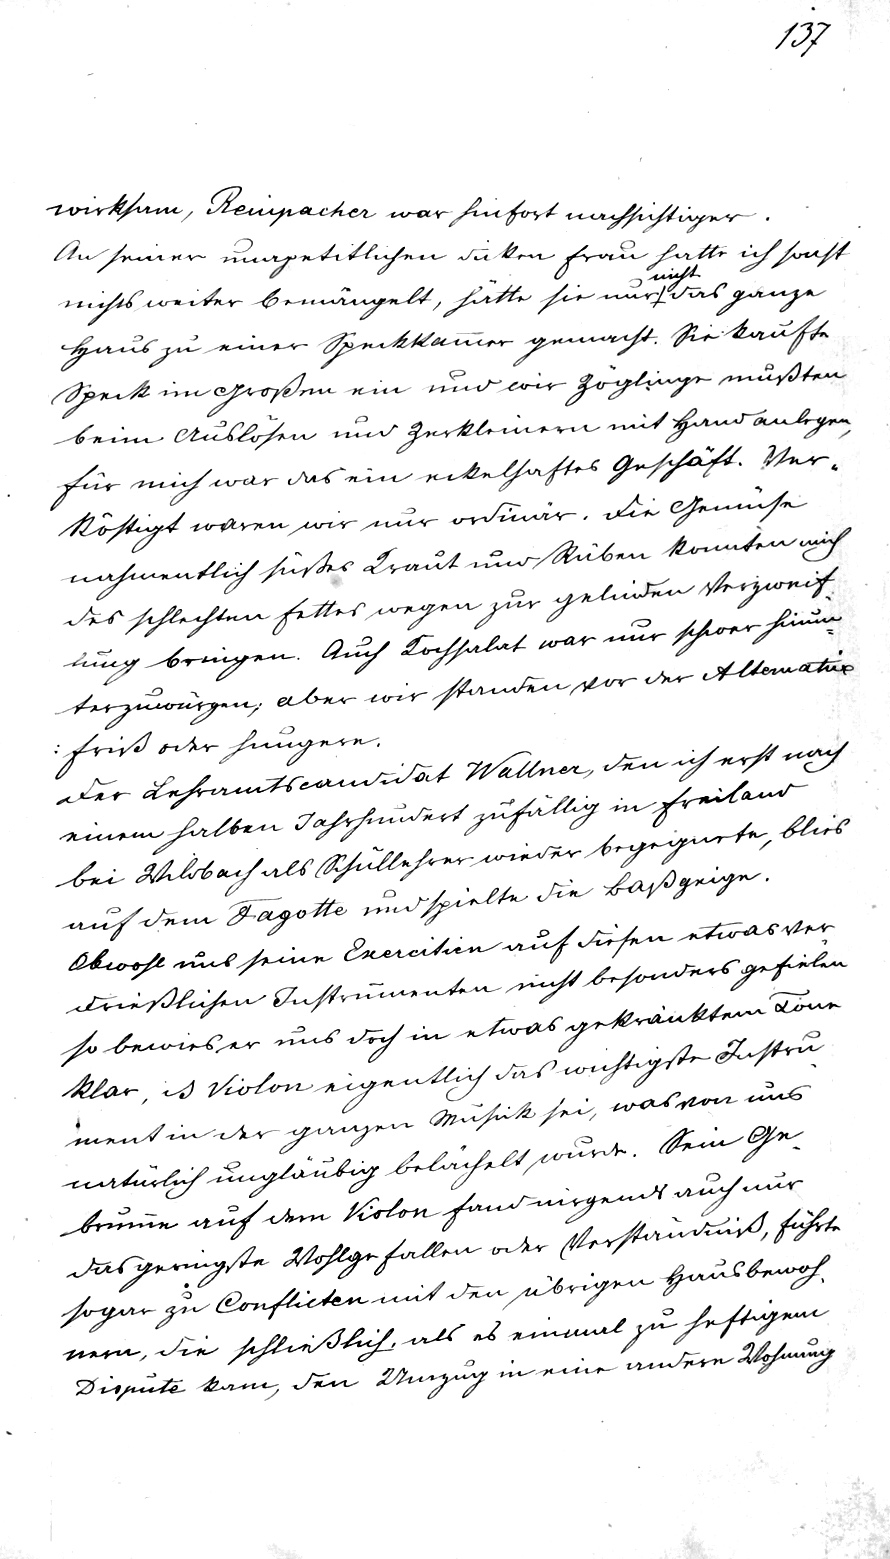 137
wirksam, Reinpacher war hinfort nachsichtiger.
An seiner unapetitlichen dicken Frau hatte ich sonst
nichts weiter bemängelt, hätte sie nur nicht das ganze
Haus zu einer Speckkam̅er gemacht. Sie kaufte
Speck im Großen ein und wir Zöglinge mußten
beim Auslösen und Zerkleinern mit Hand anlegen,
für mich war das ein eckelhaftes Geschäft. Ver-
köstigt waren wir nur ordinär. Die Gemüse
nahmentlich süßes Kraut und Rüben konnten mich
des schlechten Fettes wegen zur gelinden Verzweif-
lung bringen. Auch Kochsalat war nur schwer hinun-
terzuwürgen; aber wir standen vor der Alternative
: friß oder hungere.
Der Lehramtscandidat Wallner, den ich erst nach
einem halben Jahrhundert zufällig in Freiland
bei Wildbach als Schullehrer wieder begegnete, blies
auf dem Fagotte und spielte die Baßgeige.
Obwohl uns seine Exercitien auf diesen etwas ver-
drießlichen Instrumenten nicht besonders gefielen
so bewies er uns doch in etwas gekränktem Tone
klar, Violon eigentlich das wichtigste Instru-
ment in der ganzen Musik sei, was von uns
natürlich ungläubig belächelt wurde. Sein Ge-
brum̅e auf dem Violon fand nirgends auch nur
das geringste Wohlgefallen oder Verständniß, führte
sogar zu Conflicten mit den übrigen Hausbewoh-
nern, die schließlich, als es einmal zu heftigem
Dispute kam, den Umzug in eine andere Wohnung